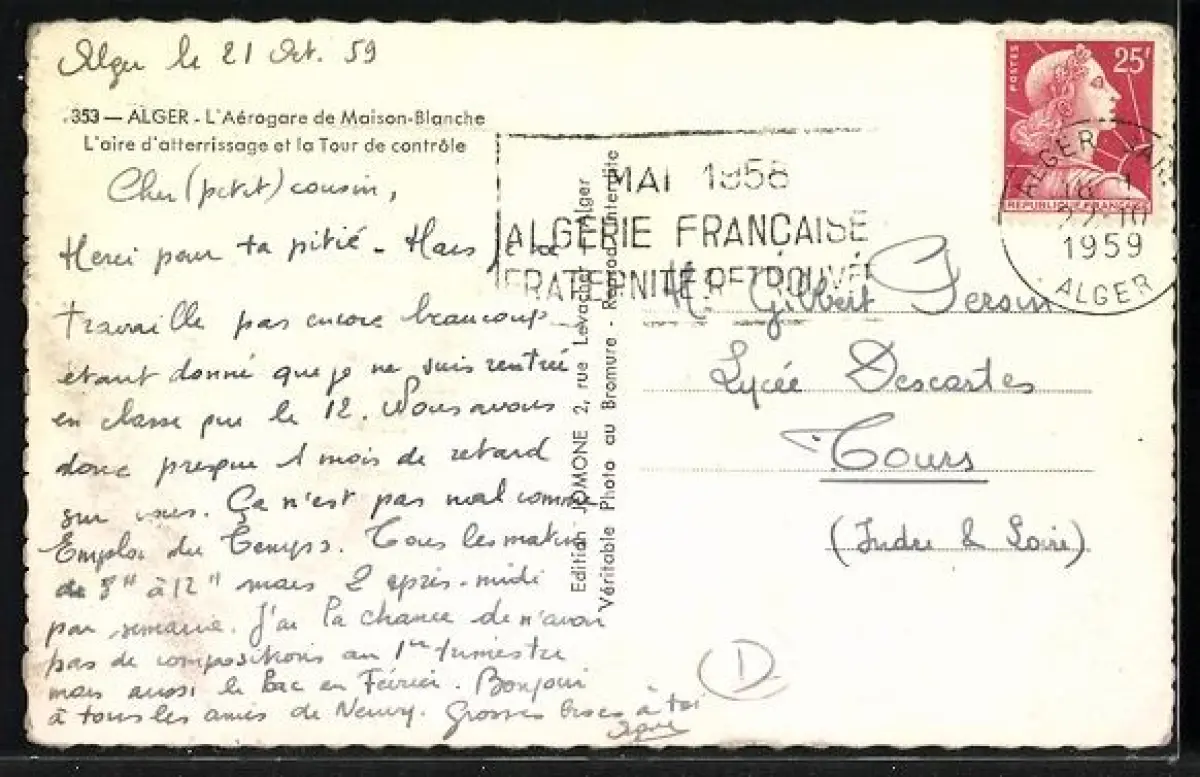 Alger le 21 Oct. 59
353 — ALGER - L'Aérogare de Maison-Blanche
L'aire d'atterrissage et la Tour de contrôle
Cher (petit) cousin,
Merci pour ta pitié - Mais je ne
travaille pas encore beaucoup
étant donné que je ne suis rentrée
en classe que le 12. Nous avons
donc presque 1 mois de retard
sur vous. Ça n'est pas mal comme
Emploi du Temps. Tous les matins
de 8H à 12H mais 2 après-midi
par semaine. J'ai la chance de n'avoir
pas de compositions au 1er trimestre
mais aussi le Bac en Février. Bonjour
à tous les amis de Neuvy. Grosses bises à toi
Edition JOMONE 2, rue Levacher - Alger
Véritable Photo au Bromure - Reprod. Interdite
MAI 1958
ALGERIE FRANÇAISE
FRATERNITÉ RETROUVÉE
POSTES
25F
REPUBLIQUE FRANÇAISE
ALGER
1959
ALGER
M. Gilbert Persin
Lycée Descartes
Tours
(Indre & Loire)
D